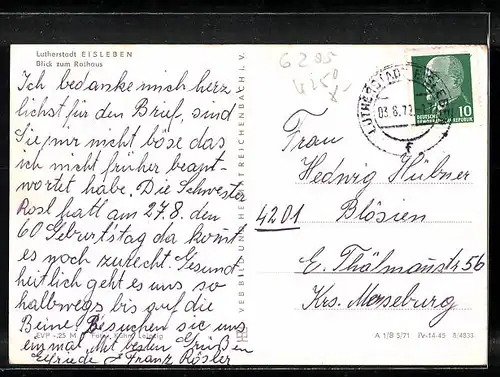 Lutherstadt EISLEBEN
Blick zum Rathaus
Ich bedanke mich herz
lichst für den Brief, sind
Sie mir nicht böse das
ich nicht früher beant-
wortet habe. Die Schwester
Rosl hatt am 27.8. den
60 Geburtstag da kommt
es noch zurecht. Gesund
heitlich geht es uns so
halbwegs bis auf die
Beine. Besuchen sie uns
einmal Mit besten Grüßen
Elfriede u Franz Rösler
EVP -.25 M Foto: Kühn, Leipzig
VEB BILD UND HEIMAT REICHENBACH i. V.
6295
LUTHERSTADT EISLEBEN
03.8.72
DEUTSCHE
DEMOKRATISCHE REPUBLIK
10
Frau
Hedwig Hübner
4201 Blösien
E. Thälmannstr 56
Krs. Merseburg
A 1/B 5/71 IV-14-45 8/4833